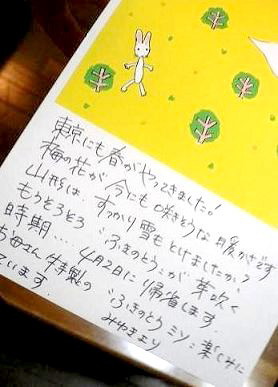 東京にも春がやってきました!
梅の花が今にも咲きそうな暖かさです
山形は、すっかり雪もとけましたか?
もうそろそろ ふきのとうが芽吹く
時期… 4月2日に帰省します。
お母さん特製の ふきのとうミソ 楽しみに
ています。
みゆきより